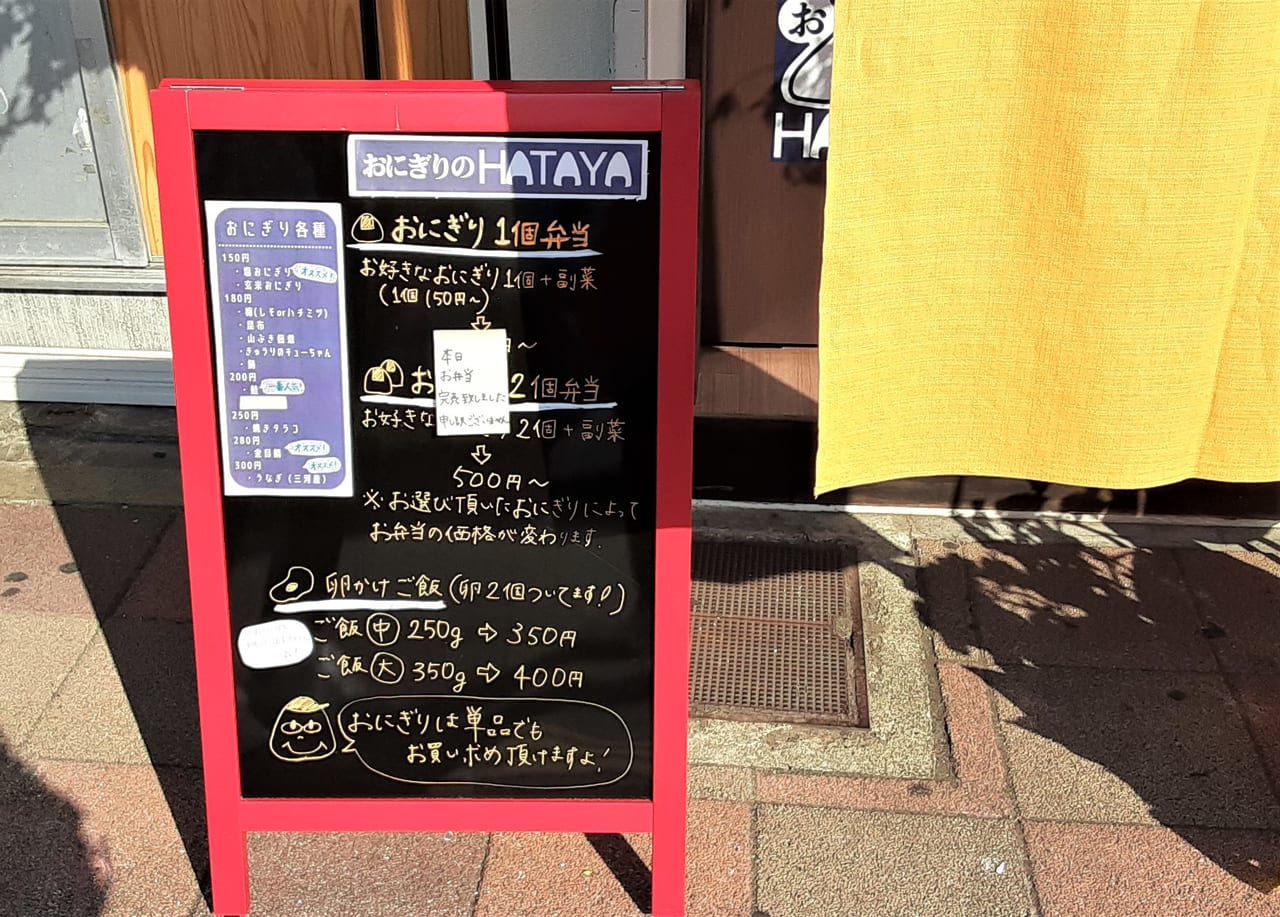 お
HA
おにぎりのHATAYA
おにぎり各種
150円
・塩おにぎり オススメ!
・玄米おにぎり
180円
・梅(しそorハチミツ)
・昆布
・山ぶき佃煮
・きゅうりのキューちゃん
200円
・鮭 一番人気!
250円
・焼きタラコ
280円
・金目鯛 オススメ!
300円 オススメ!
・うなぎ(三河産)
おにぎり1個弁当
お好きなおにぎり1個+副菜
(1個150円~)
⇩
円~
本日
お弁当
完売致しました
申し訳ございません
お 2個弁当
お好きな 2個+副菜
⇩
500円~
※お選び頂いたおにぎりによって
お弁当の価格が変わります。
卵かけご飯(卵2個ついてます!)
ご飯中250g⇨350円
ご飯大350g⇨400円
おにぎりは単品でも
お買い求め頂けますよ!